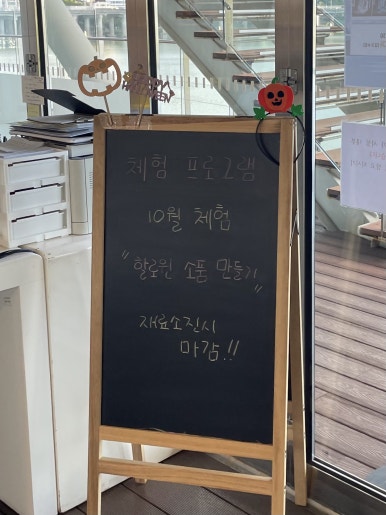 체험 프로그램
10월 체험
"할로윈 소품 만들기"
재료소진시
마감.!!